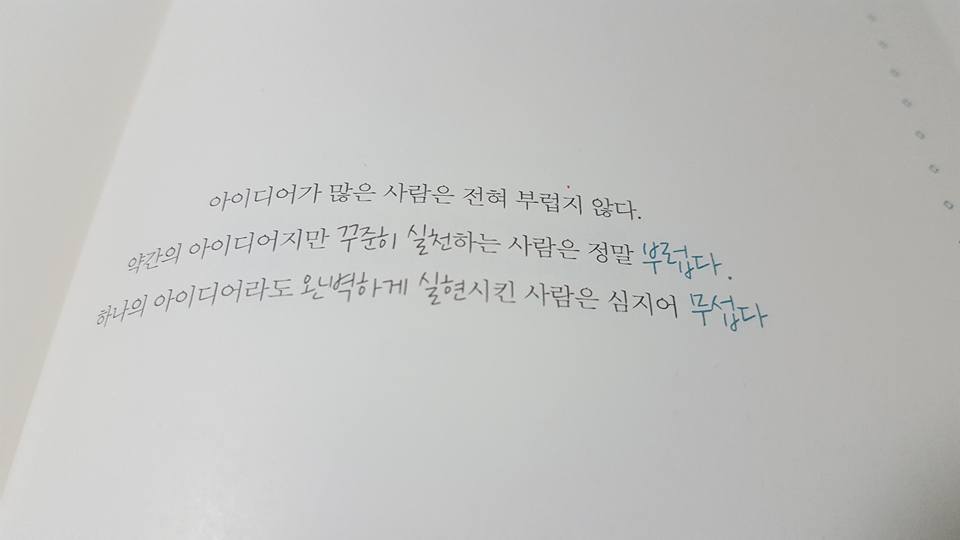 아이디어가 많은 사람은 전혀 부럽지 않다.
약간의 아이디어지만 꾸준히 실천하는 사람은 정말 부럽다.
하나의 아이디어라도 완벽하게 실현시킨 사람은 심지어 무섭다